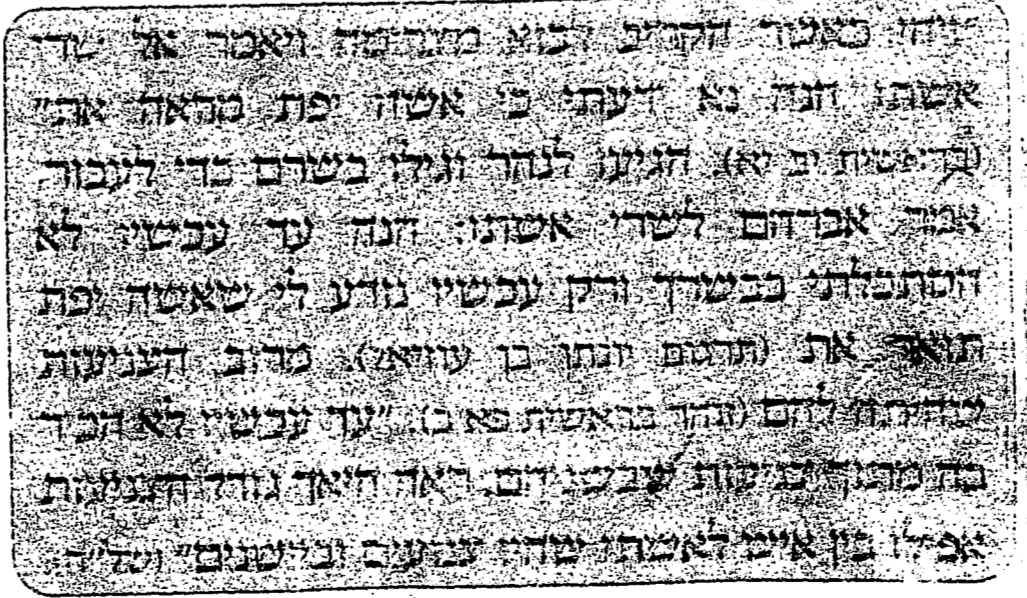 ויהי כאשר הקריב לבוא מצרימה ויאמר אל שרי
אשתו הנה נא ידעתי כי אשה יפת מראה את"
(בראשית יב יא). הגיעו לנהר וגילו בשרם כדי לעבור
אמר אברהם לשרי אשתו: הנה עד עכשיו לא
הסתכלתי בבשרך ורק עכשיו נודע לי שאשה יפת
תואר את (תרגום יונתן בן עוזיאל). מרוב הצניעות
שהיתה להם (זהר בראשית פא ב). "עד עכשיו לא הכיר
בה מתוך צניעות שבשניהם. ראה היאך גודל הצניעות
אפילו בין איש לאשתו שהיו צנועים